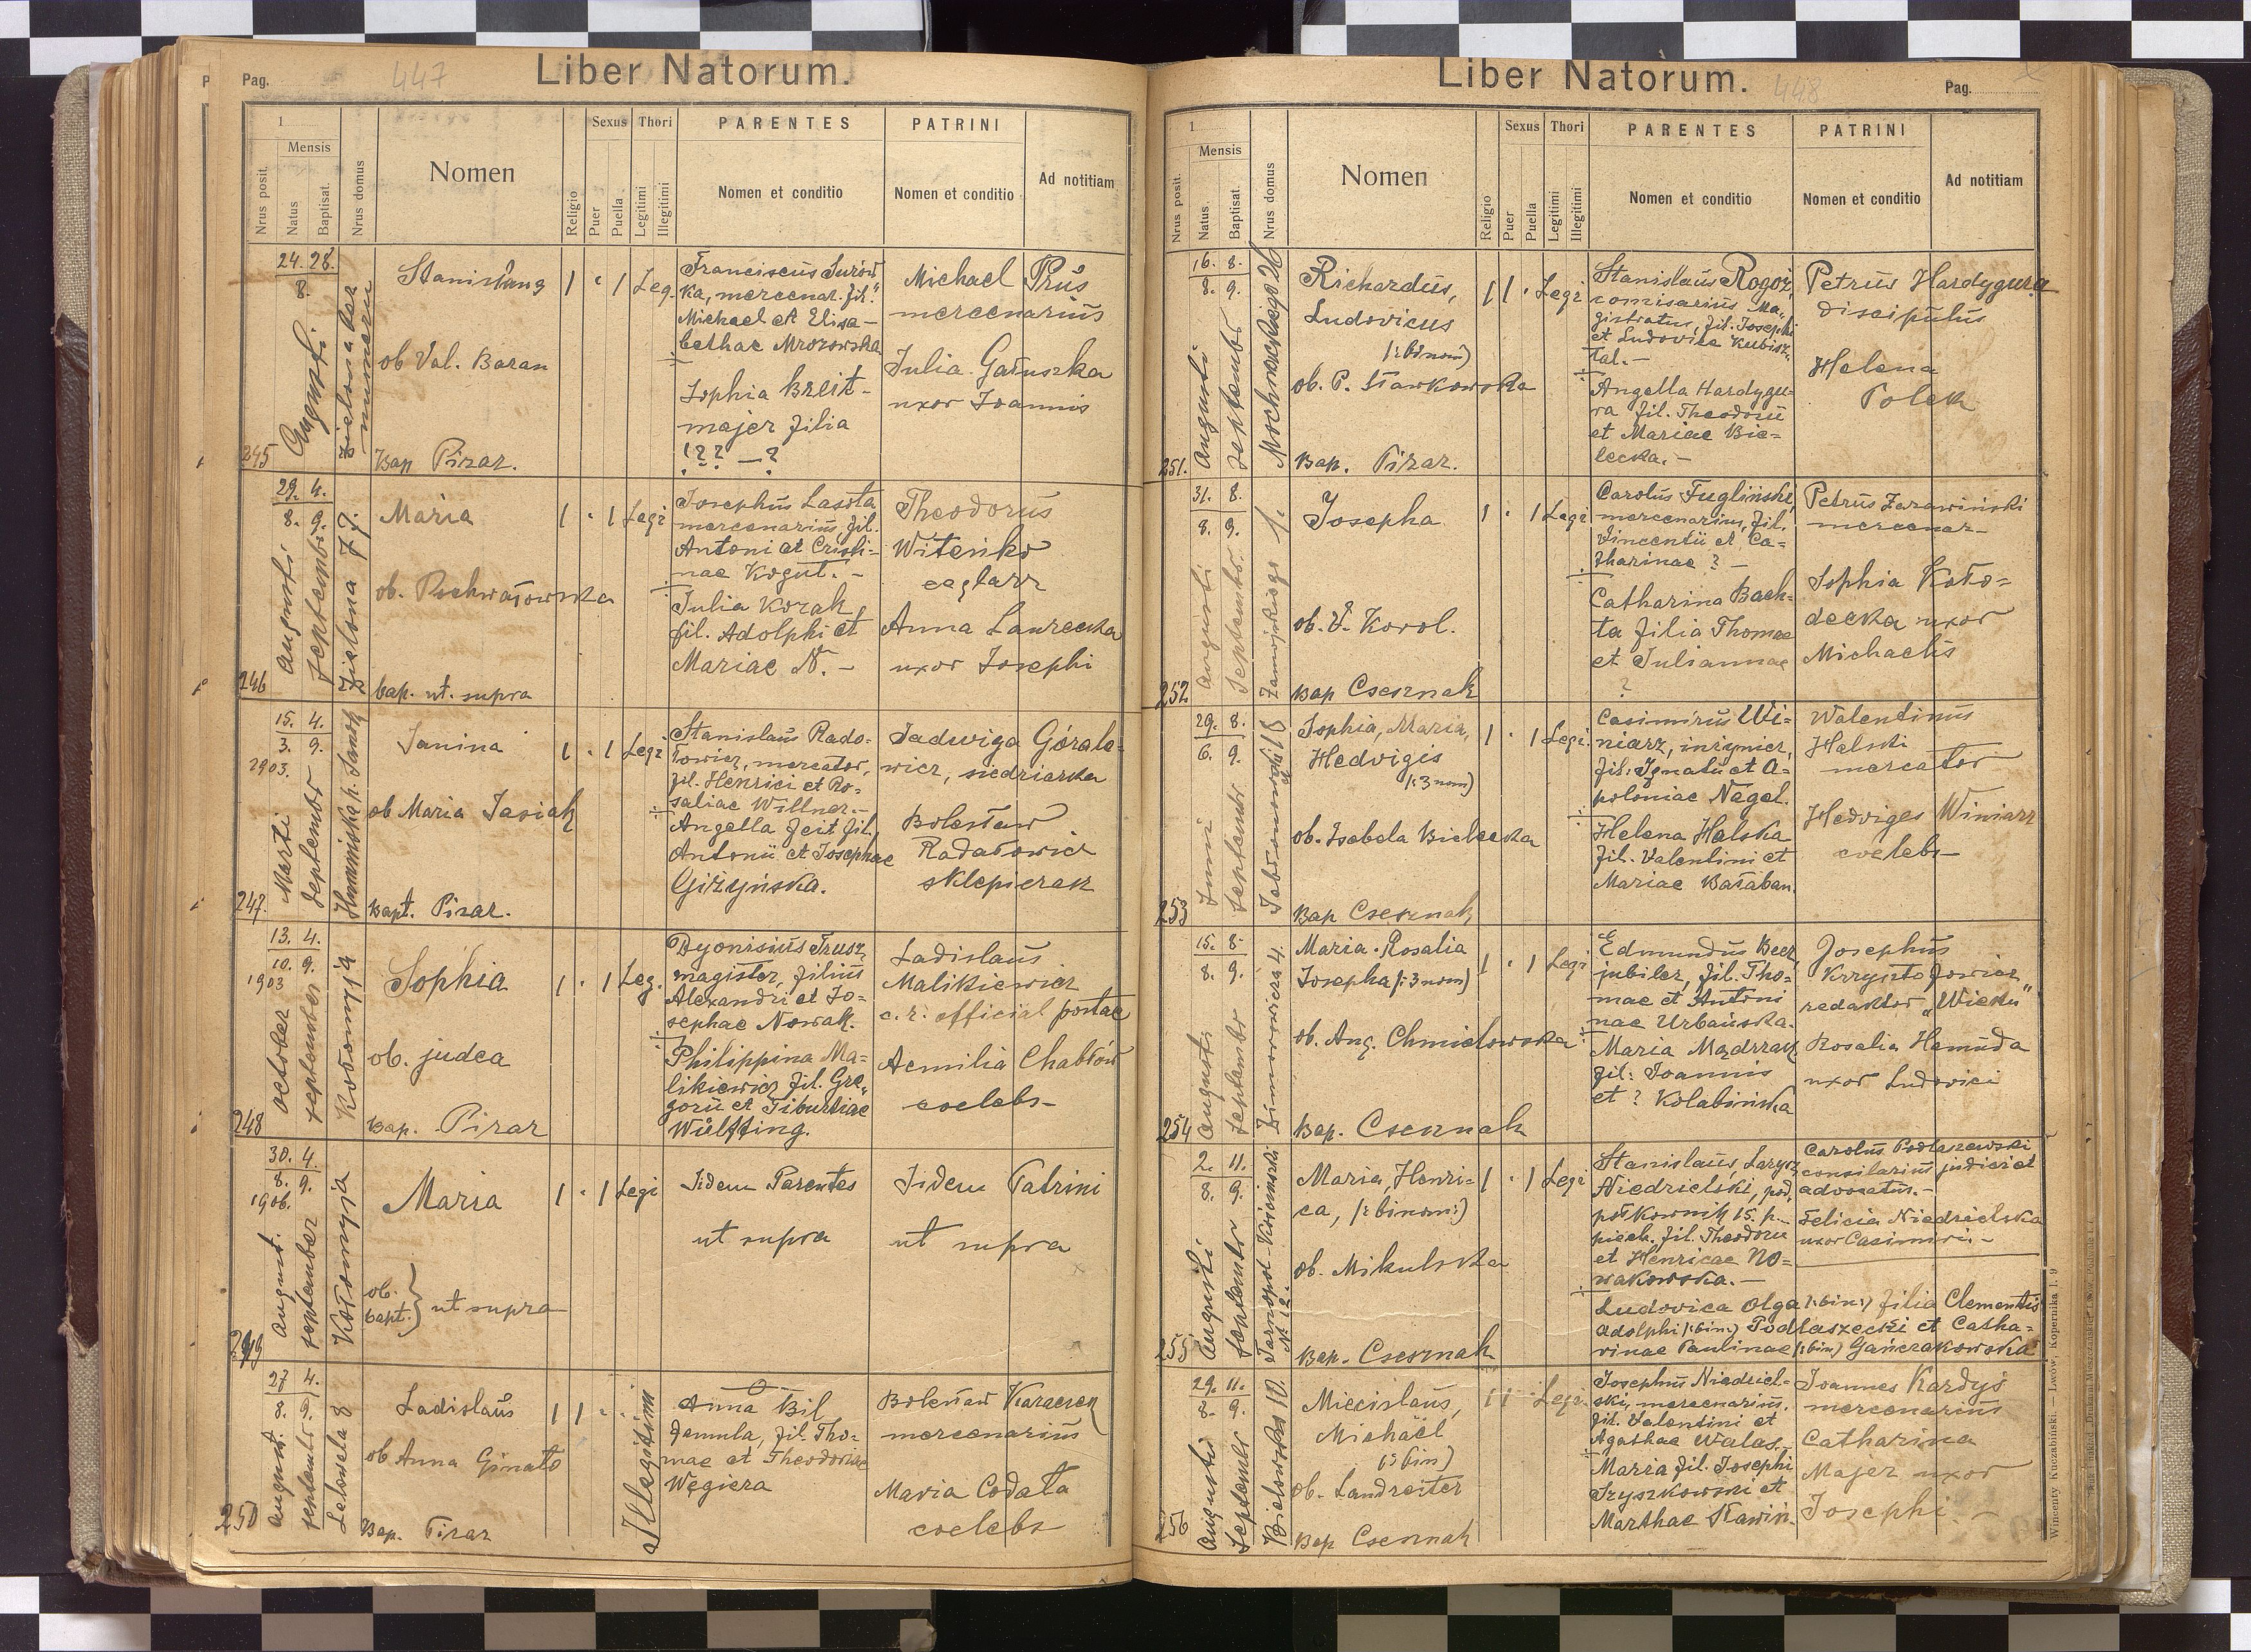 Pag.
447
Liber Natorum.
1
Mensis
Nrus posit.
Natus
Baptisat.
Nrus domus
Nomen
Religio
Sexus
Puer
Puella
Thori
Legitimi
Illegitimi
PARENTES
Nomen et conditio
PATRINI
Nomen et conditio
Ad notitiam
245
24. 28.
8.
Augusti
Zielona bez
numeru
Stanislaus
ob Val. Baran
Bap Pirar.
1 " 1 Leg.
Franciscus Surów
ka, mercenar. fil.
Michael et Elisa-
bethae Mrozowska
Sophia Breit-
majer filia
!?? - ?
Michael Prus
mercenarius
Julia Gałuszka
uxor Joannis
246
29. 4.
8. 9.
Augusti
Septembr.
Zielona 77.
Maria
ob. Pochwatowska
bap. ut. supra
1 " 1 Legi
Josephus Lasota
mercenarius, fil.
Antoni et Cristi-
nae Kogut. -
Julia Kozak
fil. Adolphi et
Mariae N. -
Theodorus
Witenko
ceglarz
Anna Laurecka
uxor Josephi
247.
15. 4.
3. 9.
1903.
Marti
Septembr
Janina
ob Maria Jasiak
Bapt. Pirar.
1 " 1 Legi
Stanislaus Rado-
łowicz, mercator,
fil. Henrici et Ro-
saliae Willner. -
Angella Zeit fil.
Antonii et Josephae
Giżyńska.
Jadwiga Górale-
wicz, siedziarka
Bolesław
Radałowicz
sklepierak
248
13. 4.
10. 9.
1903
October
september
Kołomyja
Sophia
ob. judea
Bap. Pirar
1 . 1 Leg.
Dyonisius Trusz,
magister, filius
Alexandri et Jo-
sephae Nowak.
Philippina Ma-
likiewicz fil. Gre-
gorii et Tiburtiae
Wülfting.
Ladislaus
Malikiewicz
c. r. official postae
Aemilia Chabłów
coelebs-
249
30. 4.
8. 9.
1906.
august.
september
Kołomyja
Maria
ob.
bapt. } ut supra
1 . 1 Legi
Iidem Parentes
ut supra
Iidem Patrini
ut supra
250
27 4.
8. 9.
august.
septembr.
Lelewela 8
Ladislaus
ob Anna Gimato
Bap. Pirar
1 1 "
Illegitim
Anna Bil
famula, fil. Tho-
mae et Theodoriae
Węgiera
Bolesław Karaczek
mercenarius
Maria Codała
coelebs
Liber Natorum.
448
Pag.
1
Mensis
Nrus posit.
Natus
Baptisat.
Nrus domus
Nomen
Religio
Sexus
Puer
Puella
Thori
Legitimi
Illegitimi
PARENTES
Nomen et conditio
PATRINI
Nomen et conditio
Ad notitiam
251.
16. 8.
8. 9.
Augusti
Septembr
Mochnackiego 26
Richardus,
Ludovicus
(:binom)
ob. P. Sławkowska
Bap. Pirar.
1 1 . Legi
Stanislaus Rogoż,
comisarius Ma-
gistratus, fil. Josephi
et Ludovika Kubisz-
tal. -
Angella Hardygu-
ra fil. Theodorii
et Mariae Bie-
lecka. -
Petrus Hardygura
discipulus
Helena
Polek
252
31. 8.
8. 9.
Augusti
Septembr.
Zamojskiego 1.
Josepha
ob. V. Korol.
Bap Csesznak
1 . 1 Legi
Carolus Fugliński,
mercenarius, fil.
Vincentii et Ca-
tharinae ? -
Catharina Bach-
ta filia Thomae
et Juliannae
?
Petrus Zarawiński
mercenar-
Sophia Koło-
decka uxor
Michaelis
253
29. 8.
6. 9.
Junii
Septembr
Jabłonowski 18
Sophia, Maria,
Hedvigis
(:3 nom)
ob. Isabela Bielecka
Bap Csesznak
1 . 1 Legi.
Casimirus Wi-
niarz, inżynier,
fil. Ignatii et A-
poloniae Nagel.
Helena Halska
fil. Valentini et
Mariae Bałaban.
Walentinus
Halski
mercator
Hedviges Winiarz
coelebs-
254
15. 8.
8. 9.
Augusti
Septembr
Zimorowicza 4.
Maria. Rosalia
Josepha (:3 nom)
ob. Ang. Chmielowska
Bap. Csesznak
1 . 1 Legi
Edmundus Beer,
jubiler, fil. Tho-
mae et Antoni
nae Urbańska.
Maria Mądrzak
fil: Joannis
et ? Kolabińska
Josephus
Krzysztofowicz
redaktor "Wieku"
Rosalia Hamuda
uxor Ludovici
255
2. 11.
8. 9.
Augusti
Septembr
Tarnopol
Nr. 12.
Maria, Henri-
ca, (:binom:)
ob. Mikulska
Bap. Csesznak
1 . 1 Legi
Stanislaus, Larysz
Niedzielski, pod-
półkownik 15. p.
piech. fil. Theodorii
et Henricae No-
wakowska. -
Ludovica Olga (:bin:) filia Clementis
Adolphi (:bin:) Podlaszecki et Catha-
rinae Paulinae (:bin) Gańczakowska
Carolus Podlaszewski
consilarius judicii et
advocatus. -
Felicia Niedzielska
uxor Casimiri. -
256
29. 11.
8. 9.
Augusti
Septembr
Bielowski 10.
Miecislaus,
Michäel
(:bin)
ob. Landreiter
Bap Csesznak
1 1 . Legi.
Josephus Niedziel-
ski, mercenarius.
fil. Valentini et
Agathae Walas. -
Maria fil. Josephi
Tryszkowski et
Marthae Sławiń.
Joannes Kardyś
mercenarius
Catharina
Majer uxor
Josephi. -
Wincenty Kuczabiński. — Lwów, Kopernika l. 9